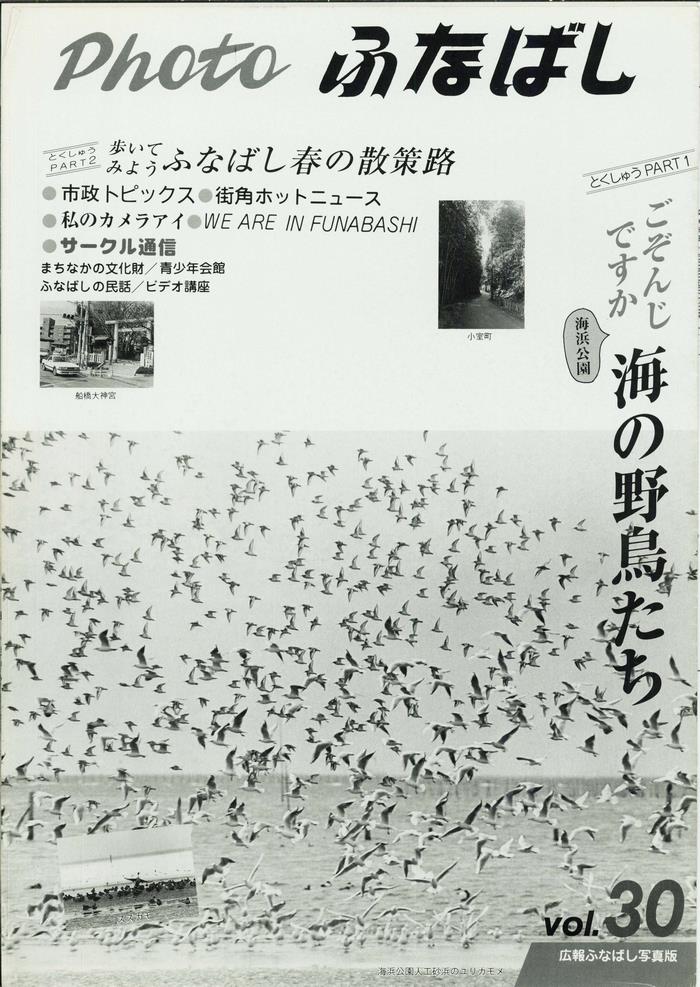 Photo ふなばし
とくしゅう
PART2
歩いて
みよう
ふなばし春の散策路
●市政トピックス●街角ホットニュース
●私のカメラアイ●WE ARE IN FUNABASHI
●サークル通信
まちなかの文化財／青少年会館
ふなばしの民話／ビデオ講座
船橋大神宮
小室町
とくしゅう PART1
ごぞんじ
ですか
海浜公園
海の野鳥たち
スズガモ
vol.30
広報ふなばし写真版
海浜公園人工砂浜のユリカモメ